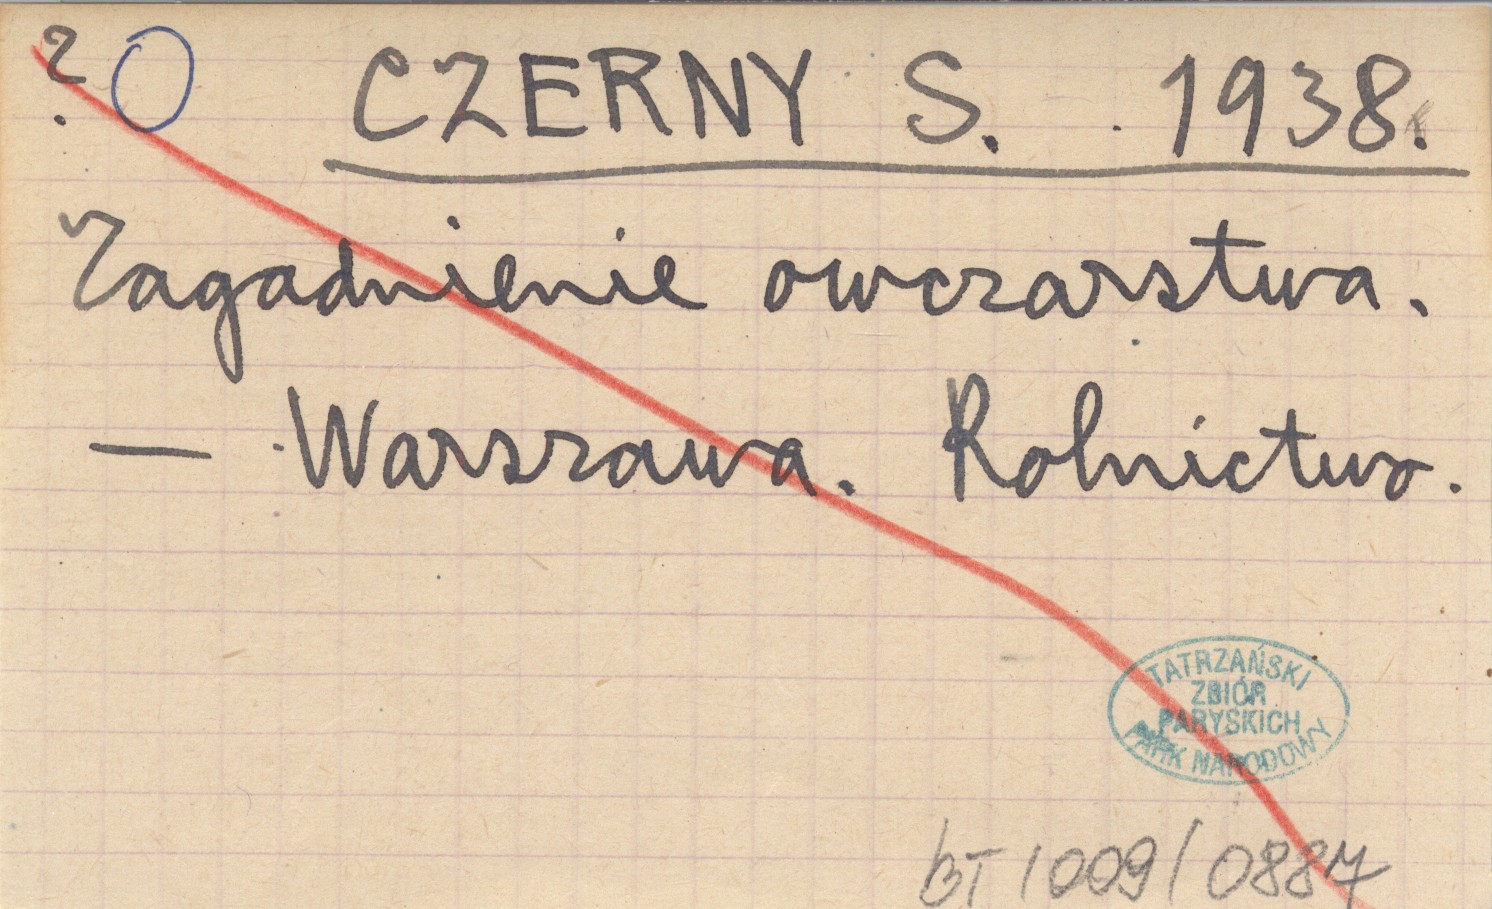 ? O CZERNY S. 1938.
Zagadnienie owczarstwa.
— Warszawa. Rolnictwo.
TATRZAŃSKI
ZBIÓR
PARYSKICH
PARK NARODOWY
BT 1009/0887